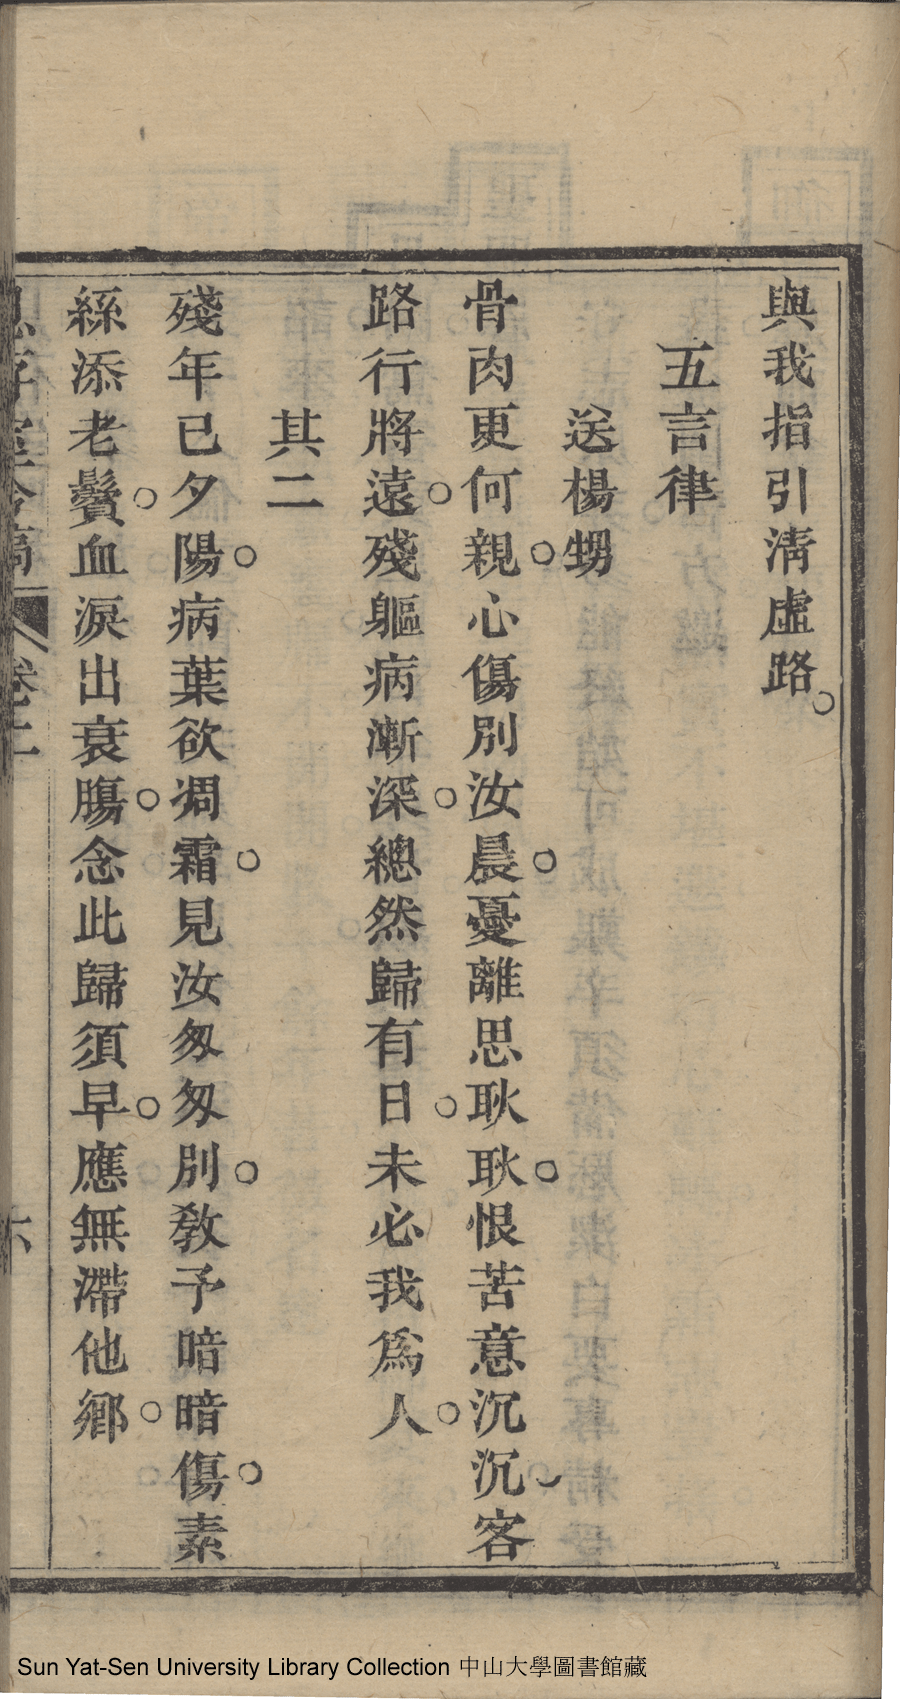 與我指引清虛路。
五言律
送楊甥
骨肉更何親。心傷別汝晨。憂離思耿耿。恨苦意沉沉。客
路行將遠。殘軀病漸深。總然歸有日。未必我爲人。
其二
殘年已夕陽。病葉欲凋霜。見汝匆匆別。教予暗暗傷。素
絲添老鬢。血淚出衰腸。念此歸須早。應無滯他鄉。
卷二
六
Sun Yat-Sen University Library Collection 中山大學圖書館藏